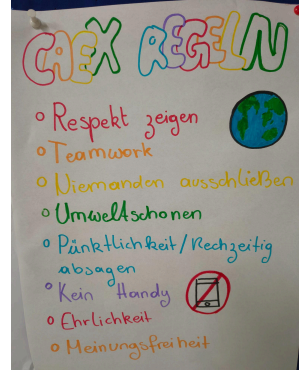 CAEX REGELN
Respekt zeigen
Teamwork
Niemanden ausschließen
Umweltschonen
Pünktlichkeit/Rechzeitig
absagen
Kein Handy
Ehrlichkeit
Meinungsfreiheit